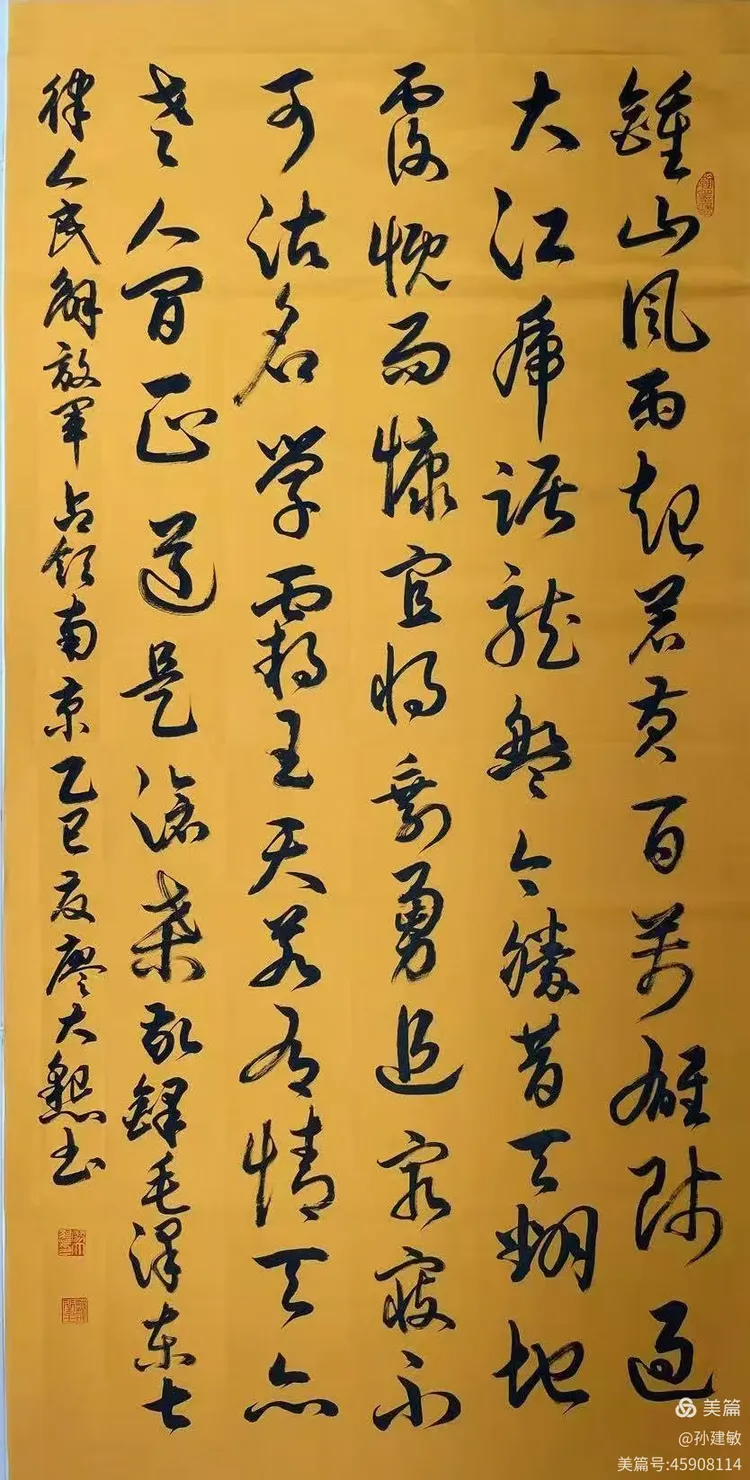 鍾山風雨起蒼黄百萬雄師過
大江虎踞龍盤今勝昔天翻地
覆慨而慷宜將剩勇追窮寇不
可沽名學霸王天若有情天亦
老人間正道是滄桑敬錄毛澤東七
律人民解放軍占領南京乙巳夏廖大懇書
美篇
@孙建敏
美篇号:45908114